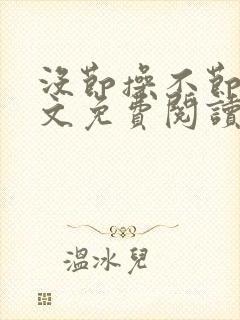 沒節操不節
文免費閱讀
溫冰兒